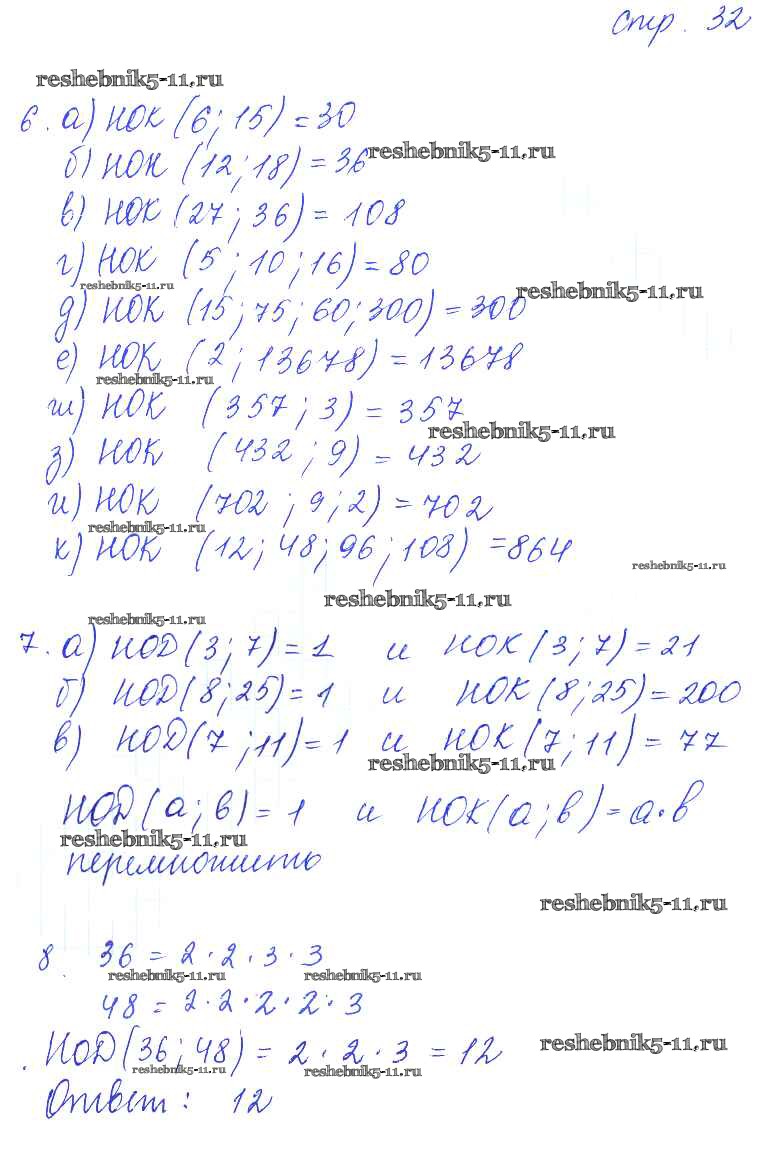 стр. 32
reshebnik5-11.ru
6. а) НОК (6; 15) = 30
б) НОК (12; 18) = 36 reshebnik5-11.ru
в) НОК (27; 36) = 108
г) НОК (5; 10; 16) = 80
reshebnik5-11.ru reshebnik5-11.ru
д) НОК (15; 75; 60; 300) = 300
е) НОК (2; 13678) = 13678
reshebnik5-11.ru
ж) НОК (357; 3) = 357
reshebnik5-11.ru
з) НОК (432; 9) = 432
и) НОК (702; 9; 2) = 702
reshebnik5-11.ru
к) НОК (12; 48; 96; 108) = 864
reshebnik5-11.ru
reshebnik5-11.ru
reshebnik5-11.ru
7. а) НОД (3; 7) = 1 и НОК (3; 7) = 21
б) НОД (8; 25) = 1 и НОК (8; 25) = 200
в) НОД (7; 11) = 1 и НОК (7; 11) = 77
reshebnik5-11.ru
НОД (а; в) = 1 и НОК (а; в) = а · в
reshebnik5-11.ru
перемножить
reshebnik5-11.ru
8. 36 = 2 · 2 · 3 · 3
reshebnik5-11.ru reshebnik5-11.ru
48 = 2 · 2 · 2 · 2 · 3
НОД (36; 48) = 2 · 2 · 3 = 12 reshebnik5-11.ru
reshebnik5-11.ru reshebnik5-11.ru
Ответ: 12